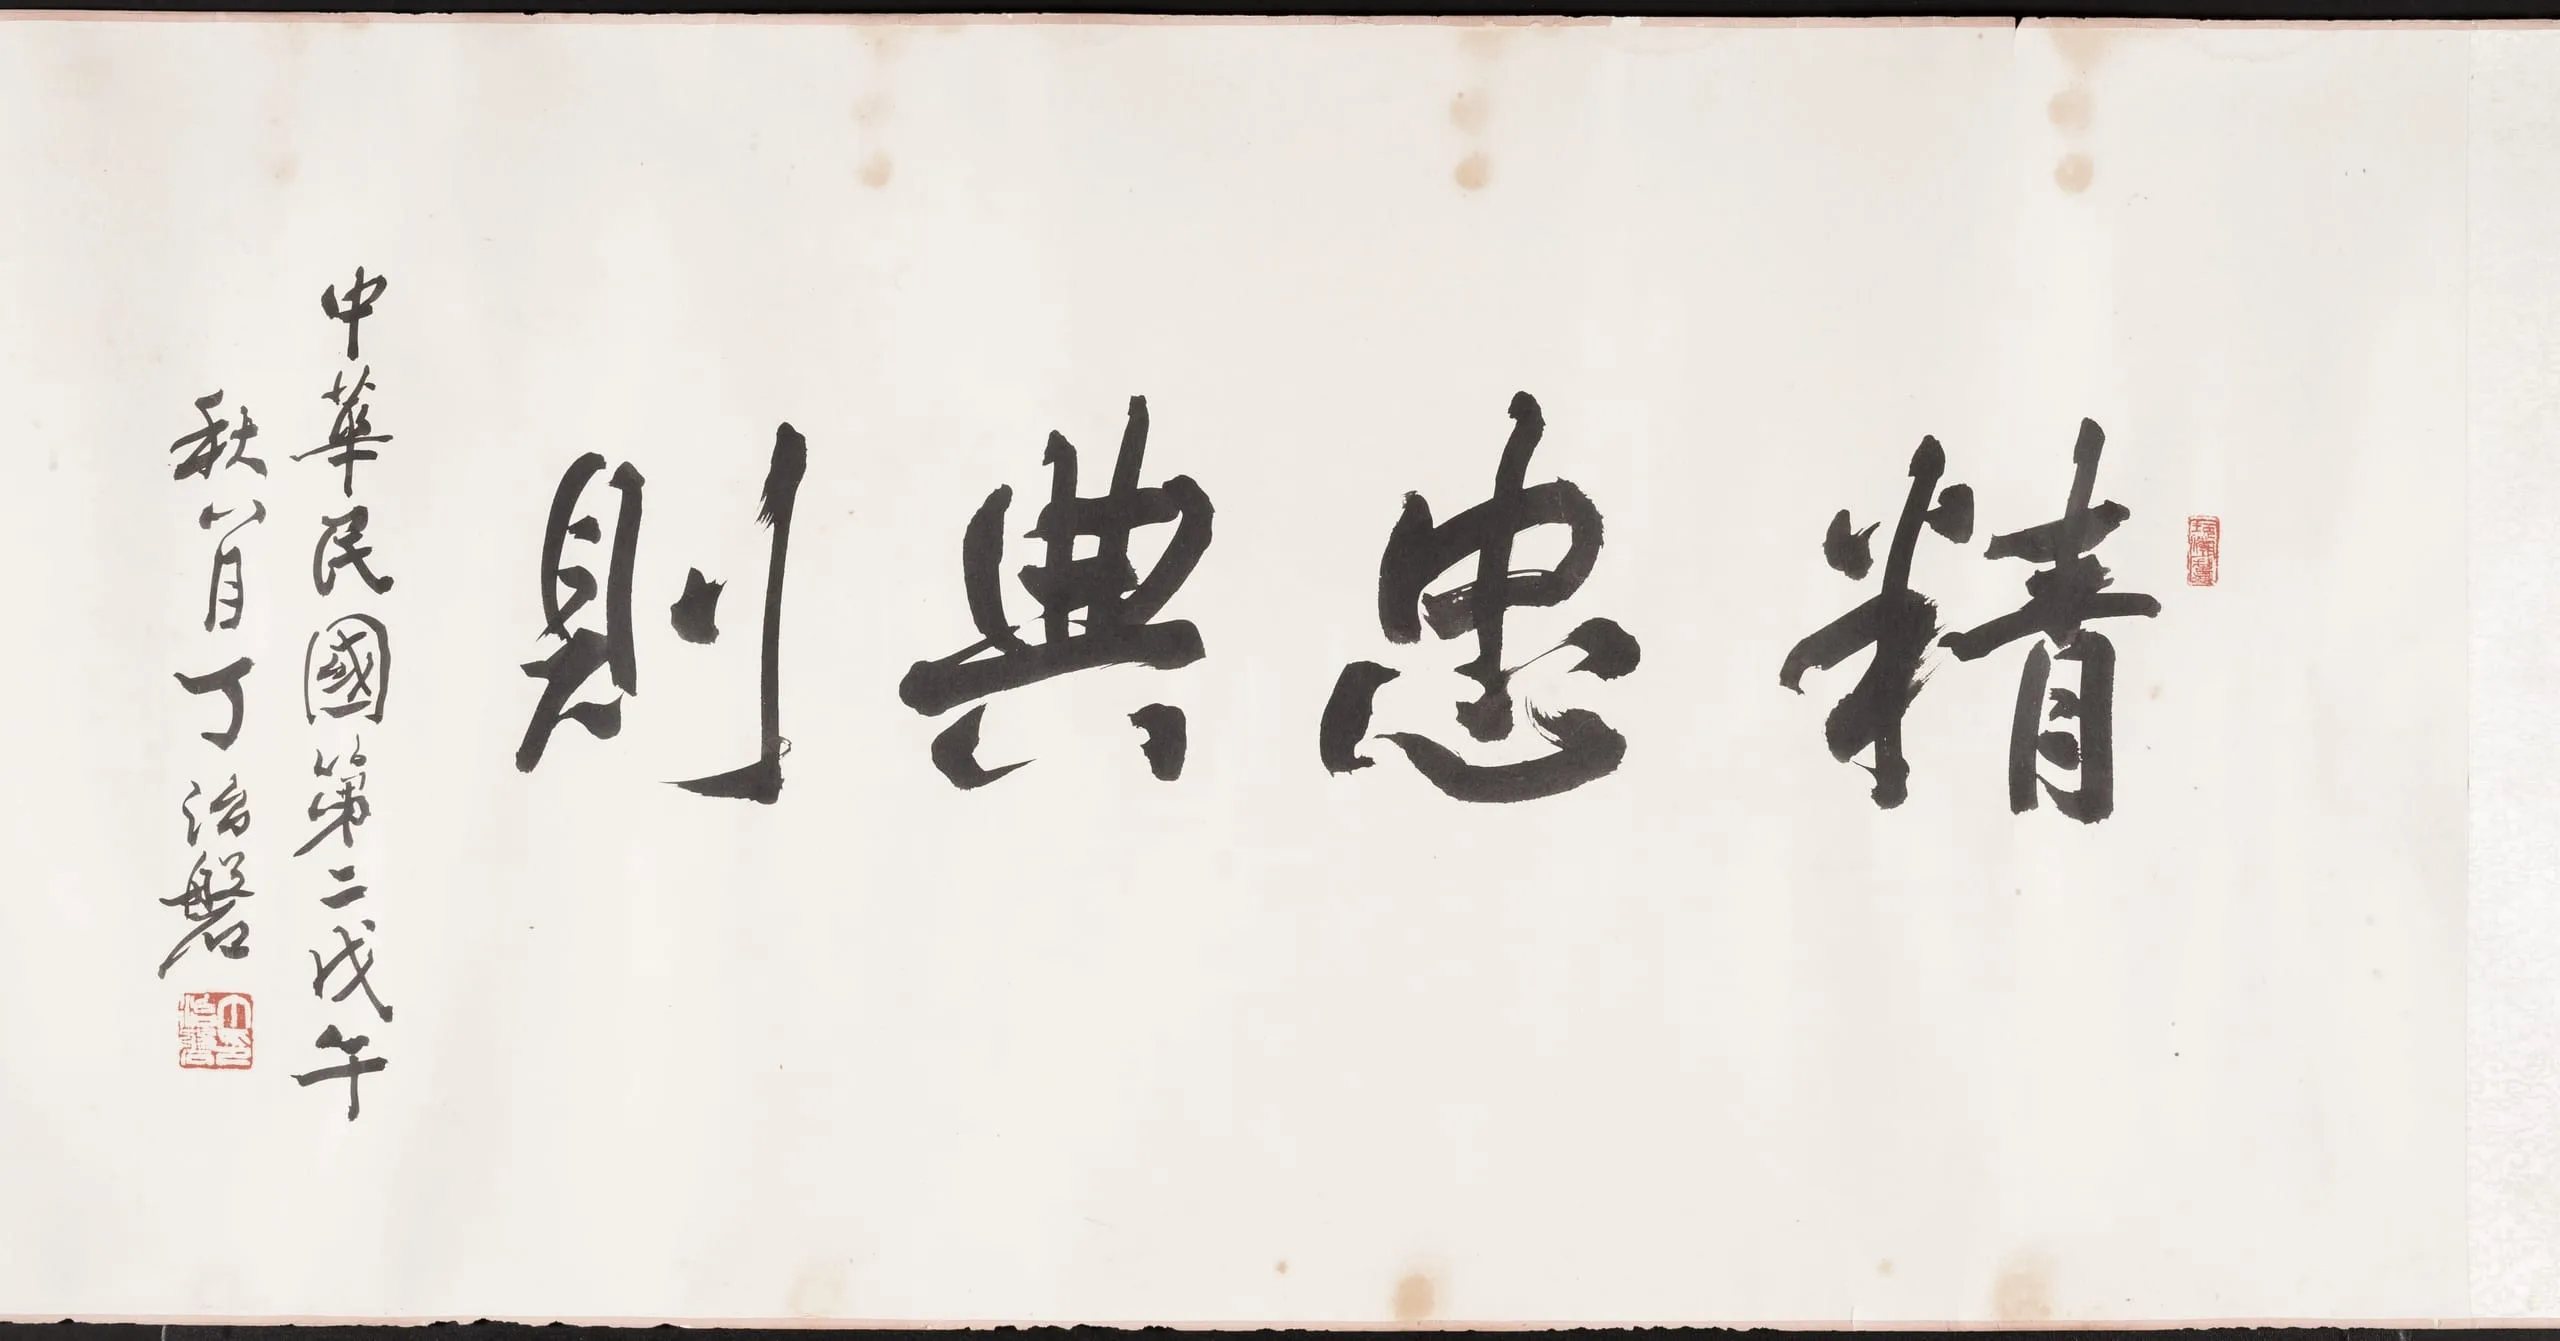 精忠典則
中華民國第二戊午
秋八月丁治磐